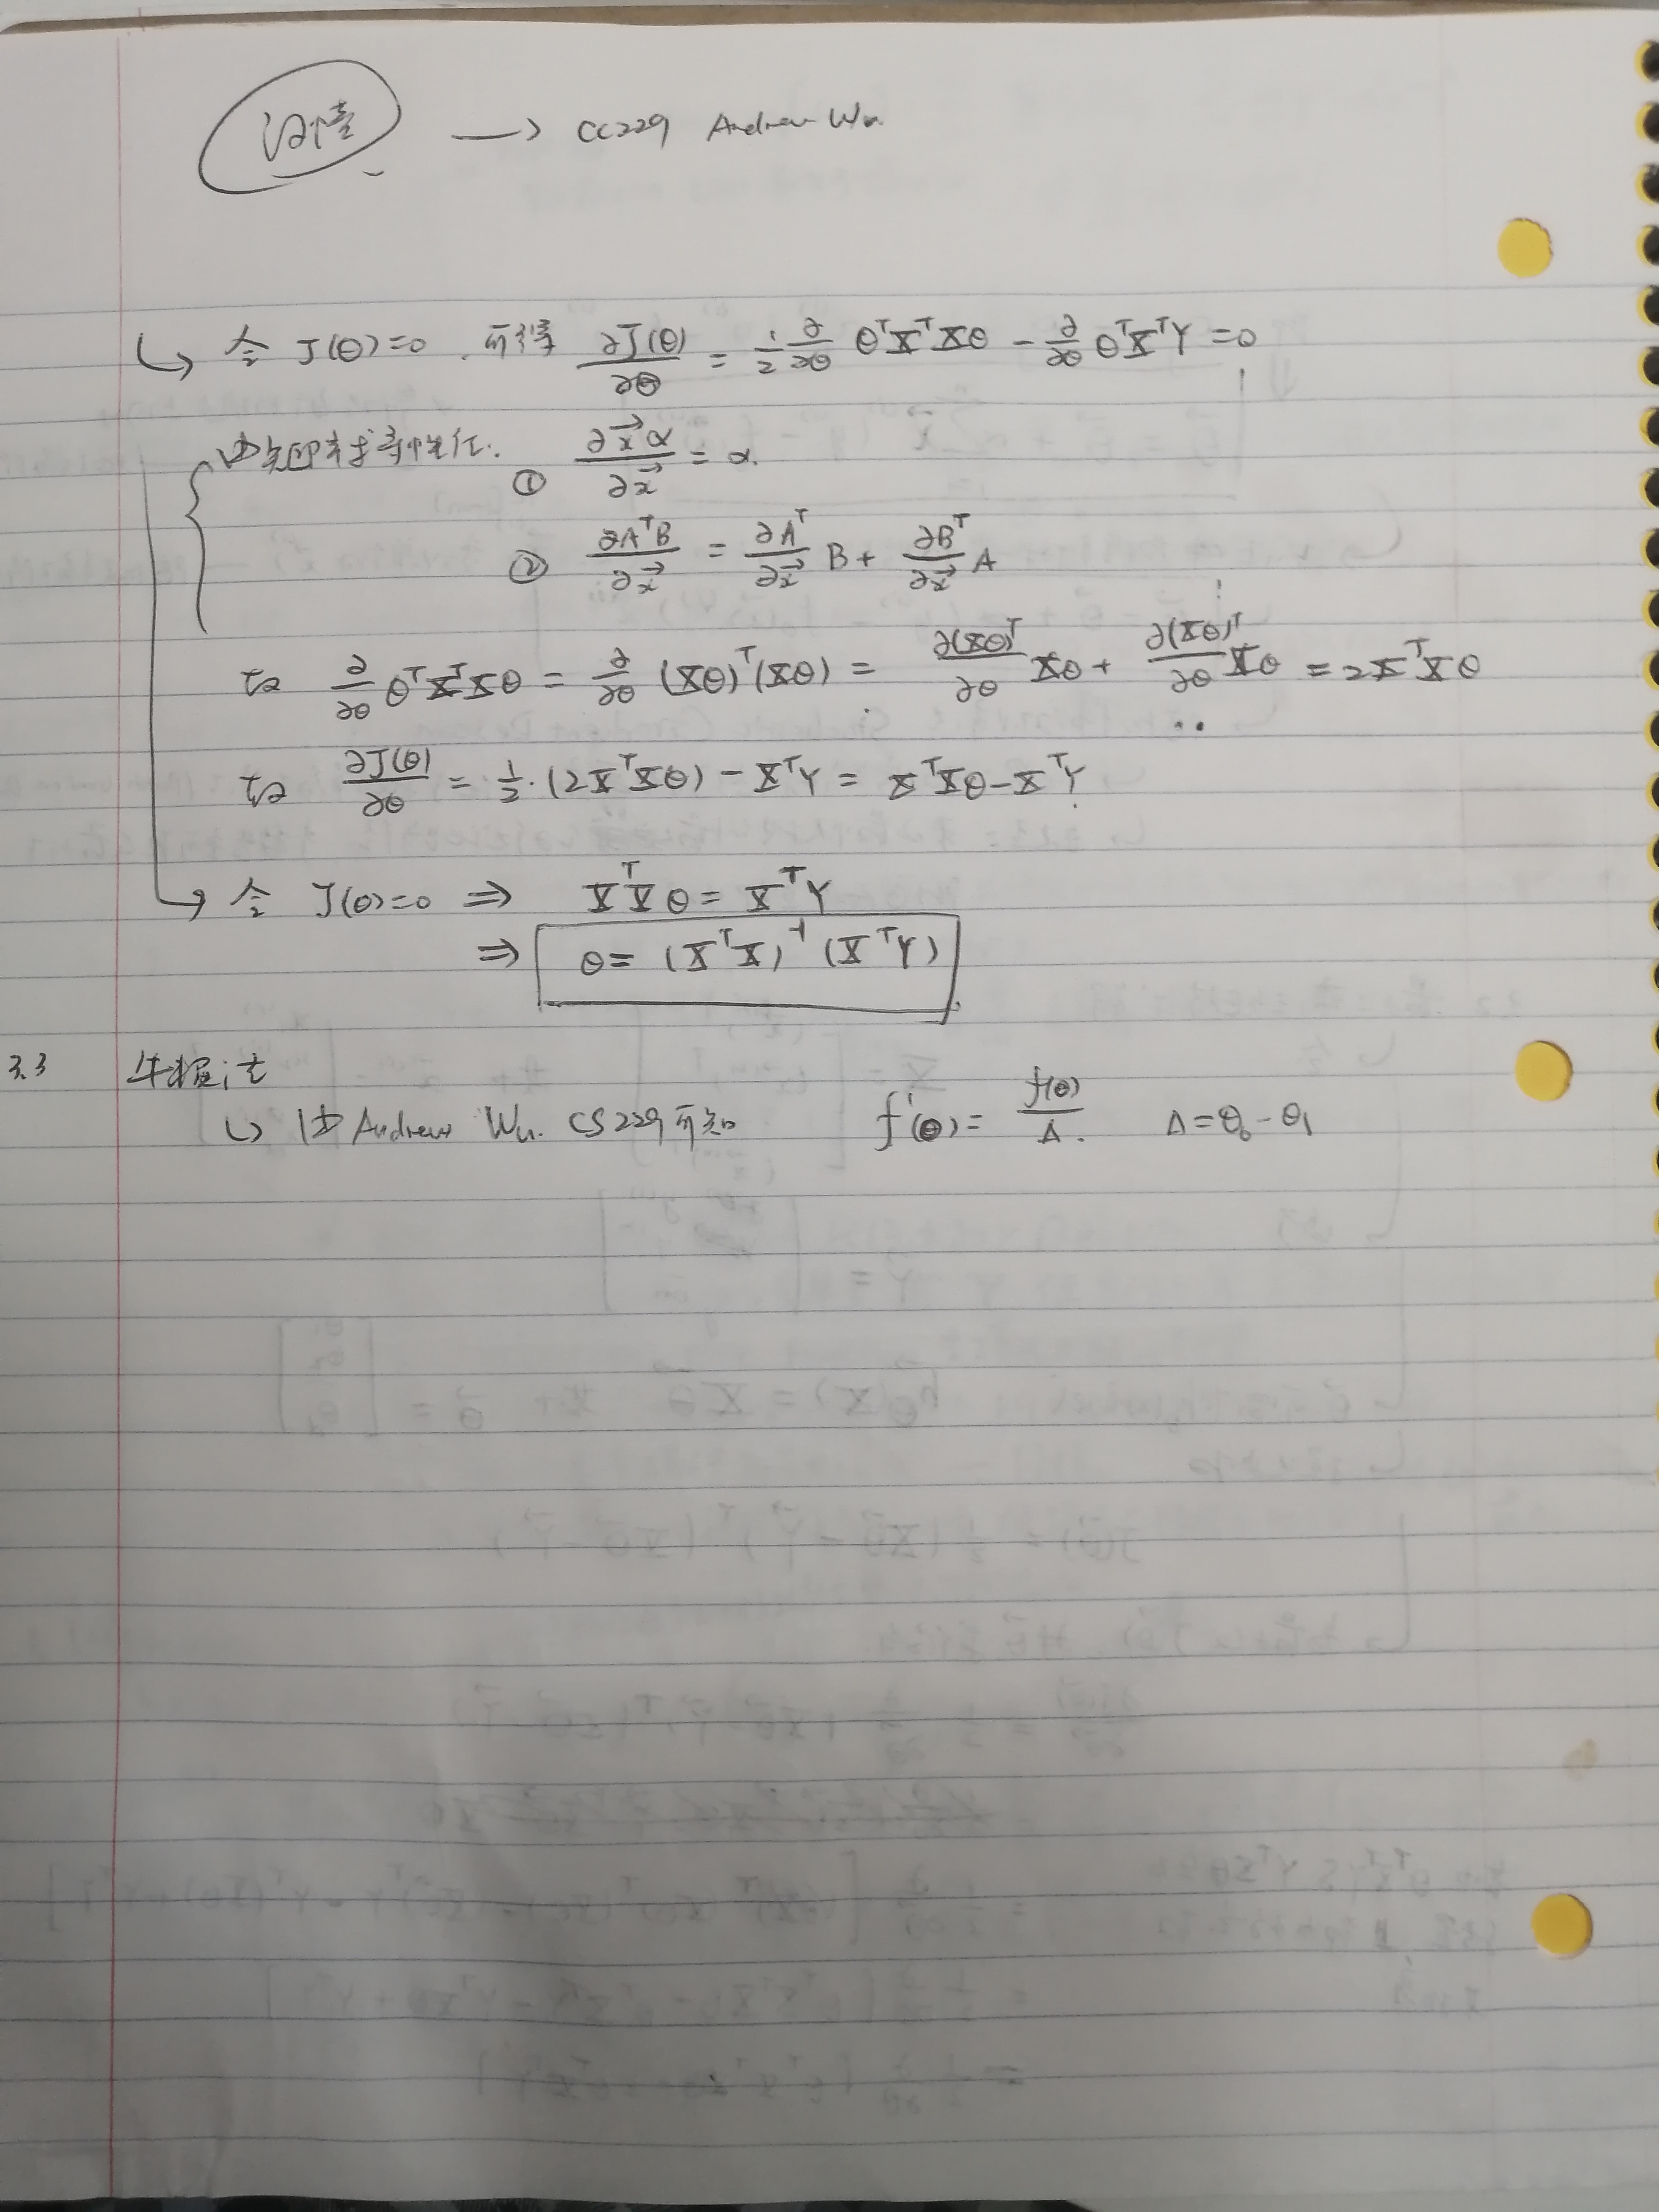 → CC229 Andrew Wu
↳ 令 J(θ)=0. 可得 ∂J(θ)/∂θ = 1/2 ∂/∂θ θᵀXᵀXθ − ∂/∂θ θᵀXᵀY = 0
由矩阵求导性质. ① ∂x⃗α/∂x⃗ = α.
② ∂AᵀB/∂x⃗ = ∂Aᵀ/∂x⃗ B + ∂Bᵀ/∂x⃗ A
故 ∂/∂θ θᵀXᵀXθ = ∂/∂θ (Xθ)ᵀ(Xθ) = ∂(Xθ)ᵀ/∂θ Xθ + ∂(Xθ)ᵀ/∂θ Xθ = 2XᵀXθ
故 ∂J(θ)/∂θ = 1/2·(2XᵀXθ) − XᵀY = XᵀXθ − XᵀY
↳ 令 J(θ)=0 ⇒ XᵀXθ = XᵀY
⇒ θ = (XᵀX)⁻¹(XᵀY)
3.3 牛顿法
↳ 由 Andrew Wu. CS229 可知 f'(θ) = f(θ)/Δ. Δ = θ₀ − θ₁